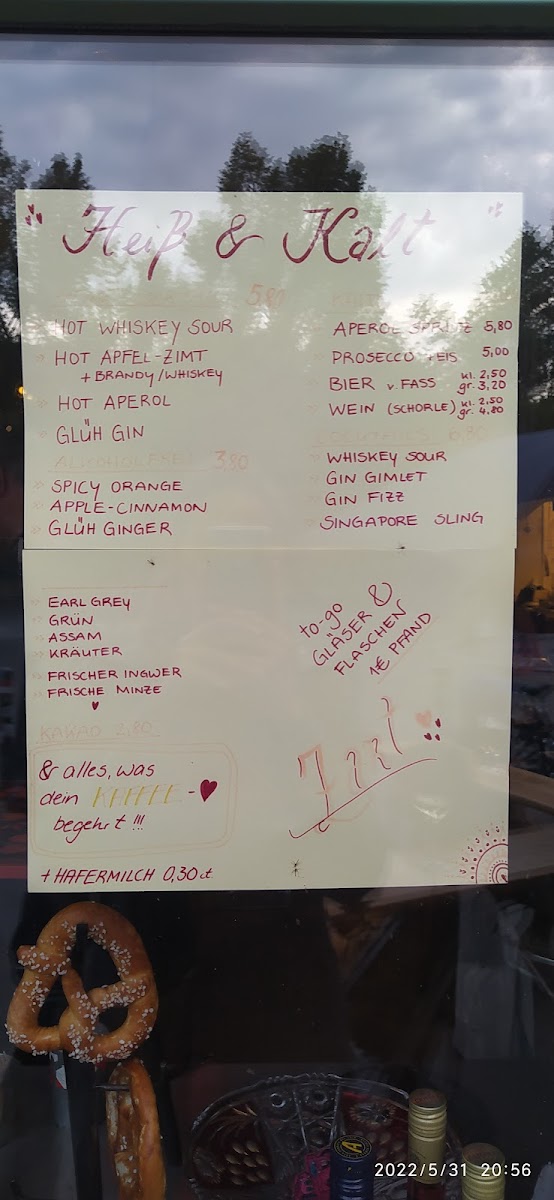 Heiß & Kalt
5,80
HOT WHISKEY SOUR
HOT APFEL-ZIMT
+ BRANDY/WHISKEY
HOT APEROL
GLÜH GIN
ALKOHOLFREI 3,80
SPICY ORANGE
APPLE-CINNAMON
GLÜH GINGER
KALT
APEROL SPRITZ 5,80
PROSECCO EIS 5,00
BIER v. FASS kl. 2,50
gr. 3,20
WEIN (SCHORLE) kl. 2,50
gr. 4,80
COCKTAILS 6,80
WHISKEY SOUR
GIN GIMLET
GIN FIZZ
SINGAPORE SLING
EARL GREY
GRÜN
ASSAM
KRÄUTER
FRISCHER INGWER
FRISCHE MINZE
KAKAO 2,80
& alles, was
dein KAFFEE -
begehrt !!!
+ HAFERMILCH 0,30 ct
to-go
GLÄSER &
FLASCHEN
1€ PFAND
2022/5/31 20:56